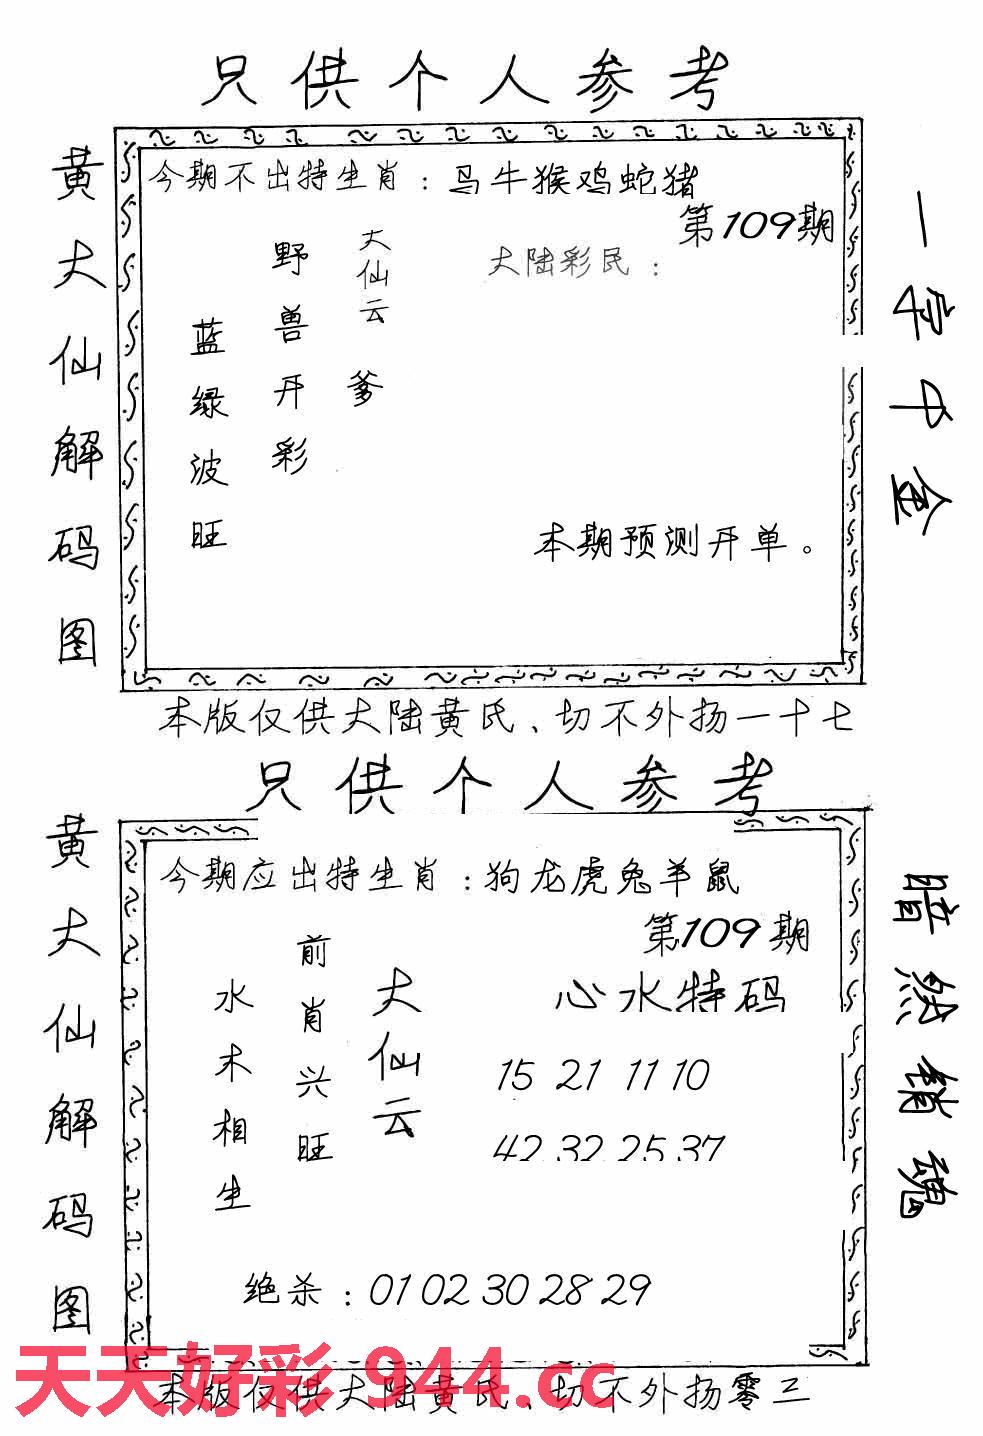 只供个人参考
黄大仙解码图
今期不出特生肖：马牛猴鸡蛇猪
第109期
大陆彩民：
大仙云爹
野兽开彩
蓝绿波旺
本期预测开单。
一字中金
本版仅供大陆黄氏、切不外扬一十七
只供个人参考
黄大仙解码图
今期应出特生肖：狗龙虎兔羊鼠
第109期
心水特码
大仙云
前肖兴旺
水木相生
15 21 11 10
42 32 25 37
绝杀：01 02 30 28 29
暗然销魂
天天好彩 944.cc
本版仅供大陆黄氏、切不外扬零三